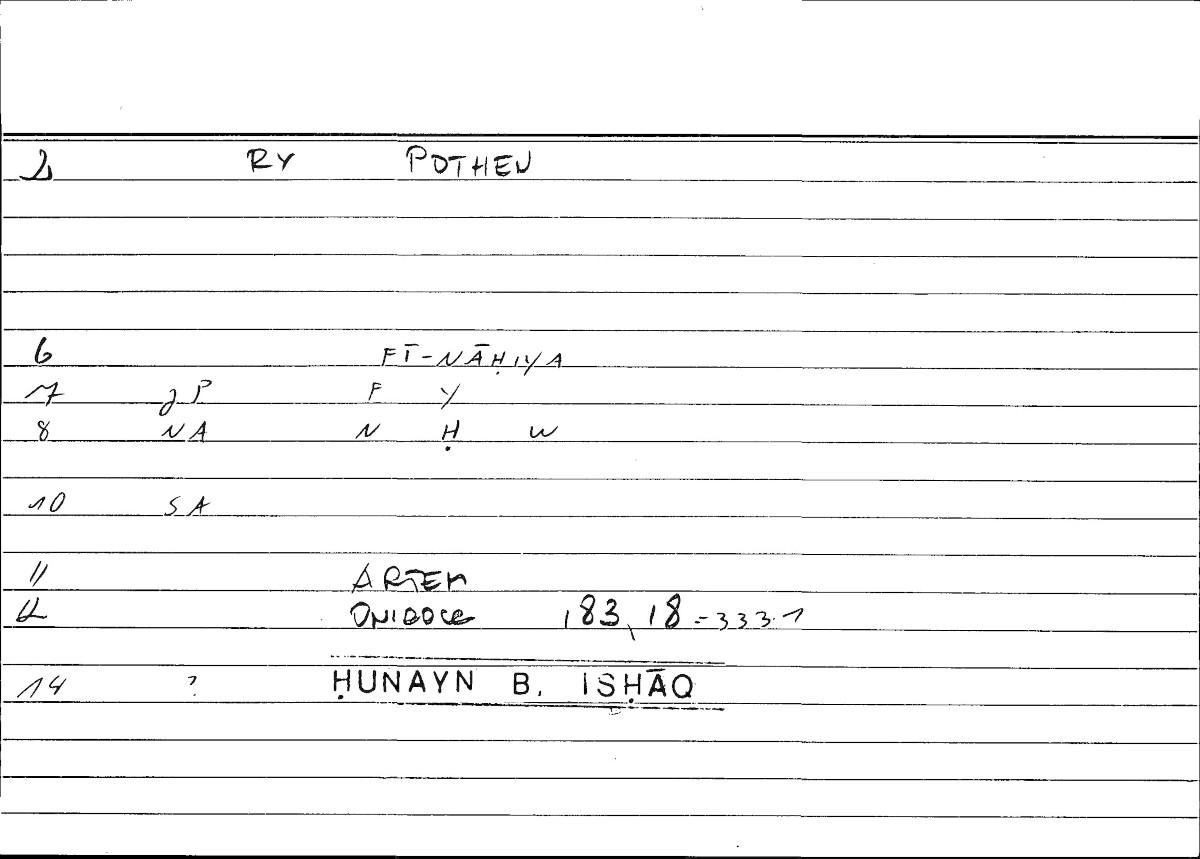 2 RY POTHEN
6 FĪ-NĀḤIYA
7 gP F Y
8 NA N Ḥ W
10 SA
11 ARTEM
12 ONIROCR 183,18 = 333.1
14 ? ḤUNAYN B. ISḤĀQ